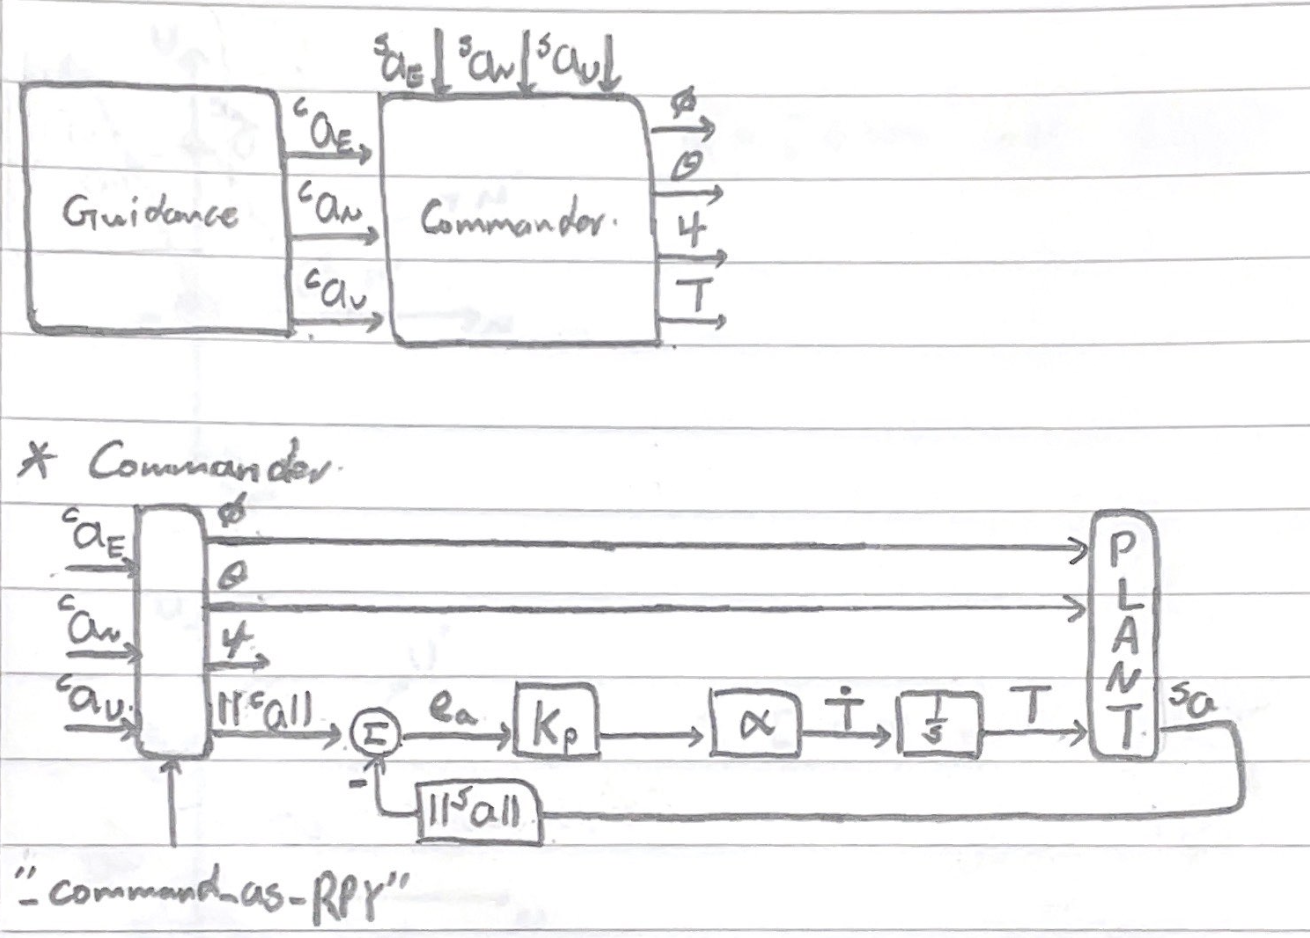 ˢa_E ˢa_N ˢa_U
Guidance
ᶜa_E
ᶜa_N
ᶜa_U
Commander.
ϕ
θ
ψ
T
* Commander.
ᶜa_E
ᶜa_N
ᶜa_U.
ϕ
θ
ψ
||ᶜa||
Σ
-
e_a
K_p
α
Ṫ
1/s
T
PLANT
ˢa
||ˢa||
"_command_as_RPY"